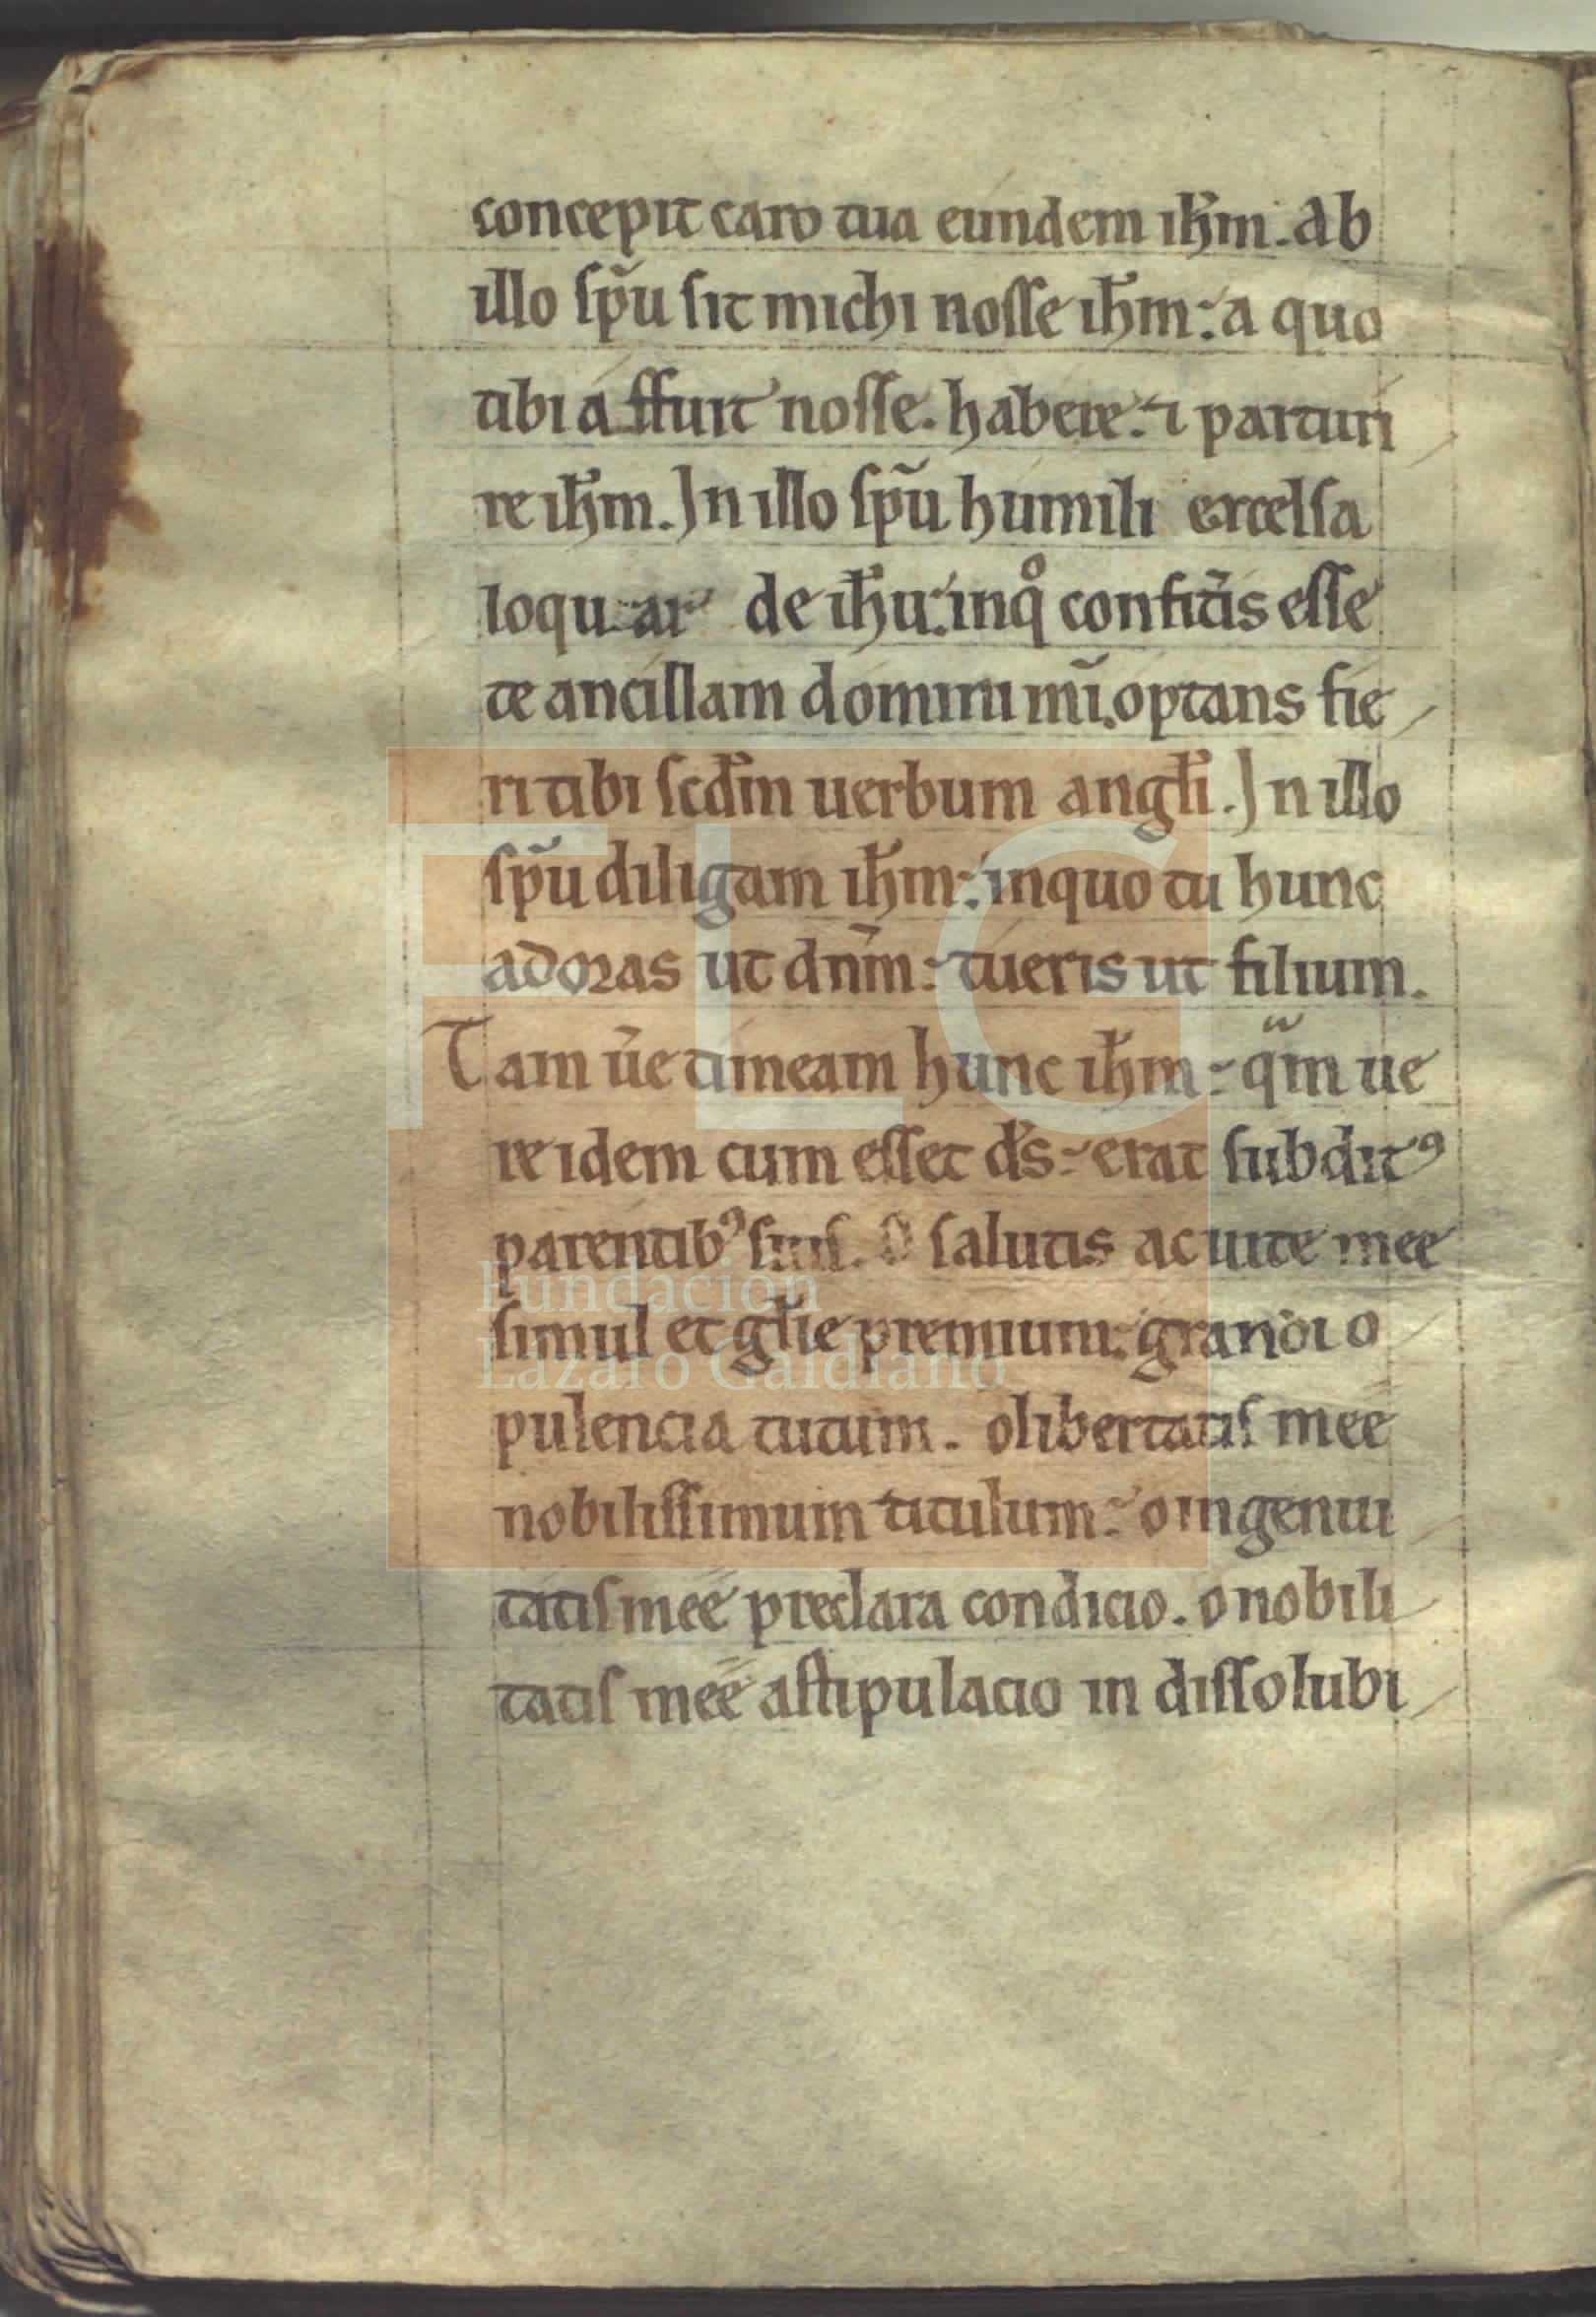 concepit caro tua eundem ih̅m. Ab
illo sp̅u sit michi nosse ih̅m: a quo
tibi affuit nosse. habere. ⁊ parturi
re ih̅m. In illo sp̅u humili excelsa
loquar de ih̅u: inqͦ confit̅is esse
te ancillam domini mi̅. optans fie
ri tibi scd̅m uerbum angl̅i. In illo
sp̅u diligam ih̅m: inquo tu hunc
adoras ut dn̅m: tueris ut filium.
Tam ue̅ timeam hunc ih̅m: qm ue
re idem cum esset d̅s: erat subditꝰ
parentibꝰ suis. O salutis ac uite mee
simul et gl̅ie premium: grandi o
pulencia tutum. o libertatis mee
nobilissimum titulum: o ingenui
tatis mee preclara condicio. o nobili
tatis mee astipulacio in dissolubi
FLG
Fundación
Lázaro Galdiano